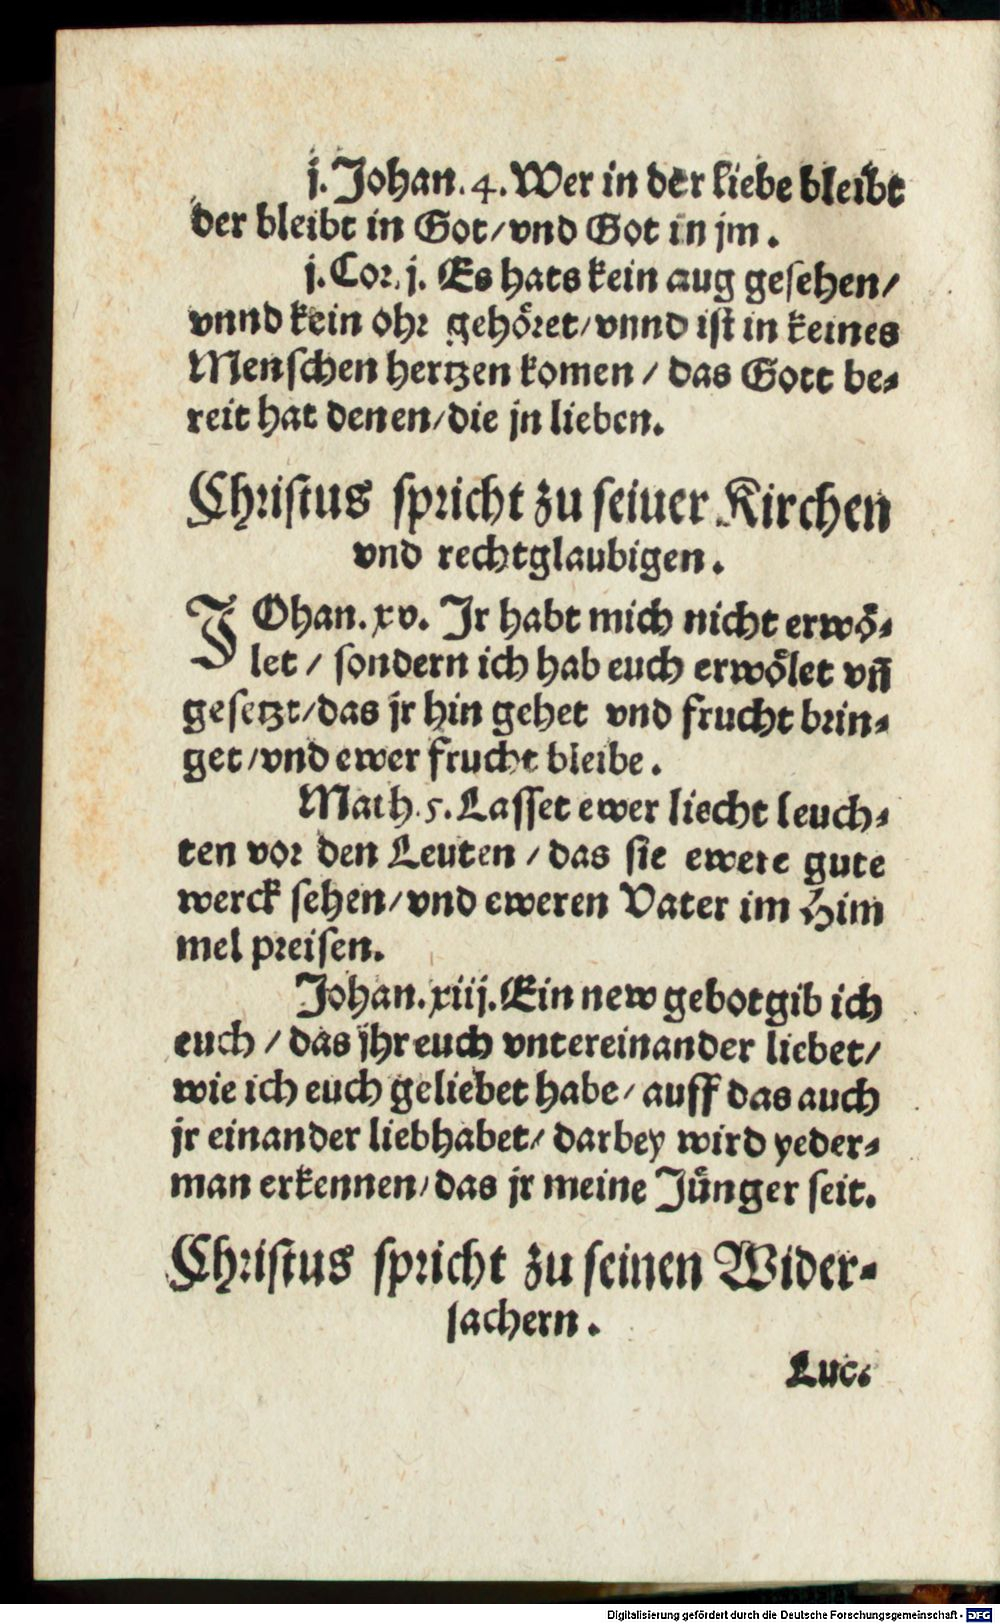 j. Johan. 4. Wer in der liebe bleibt
der bleibt in Got/vnd Got in jm.
j. Cor. j. Es hats kein aug gesehen/
vnnd kein ohr gehöret/vnnd ist in keines
Menschen hertzen komen/ das Gott be⸗
reit hat denen/die jn lieben.
Christus spricht zu seiner Kirchen
vnd rechtglaubigen.
JOhan. xv. Ir habt mich nicht erwö⸗
let/ sondern ich hab euch erwölet vñ
gesetzt/das jr hin gehet vnd frucht brin⸗
get/vnd ewer frucht bleibe.
Math. 5. Lasset ewer liecht leuch⸗
ten vor den Leuten/ das sie ewere gute
werck sehen/vnd eweren Vater im Him
mel preisen.
Johan. xiij. Ein new gebot gib ich
euch/ das jhr euch vntereinander liebet/
wie ich euch geliebet habe/ auff das auch
jr einander liebhabet/ darbey wird yeder⸗
man erkennen/das jr meine Jünger seit.
Christus spricht zu seinen Wider⸗
sachern.
Luc.
Digitalisierung gefördert durch die Deutsche Forschungsgemeinschaft - DFG